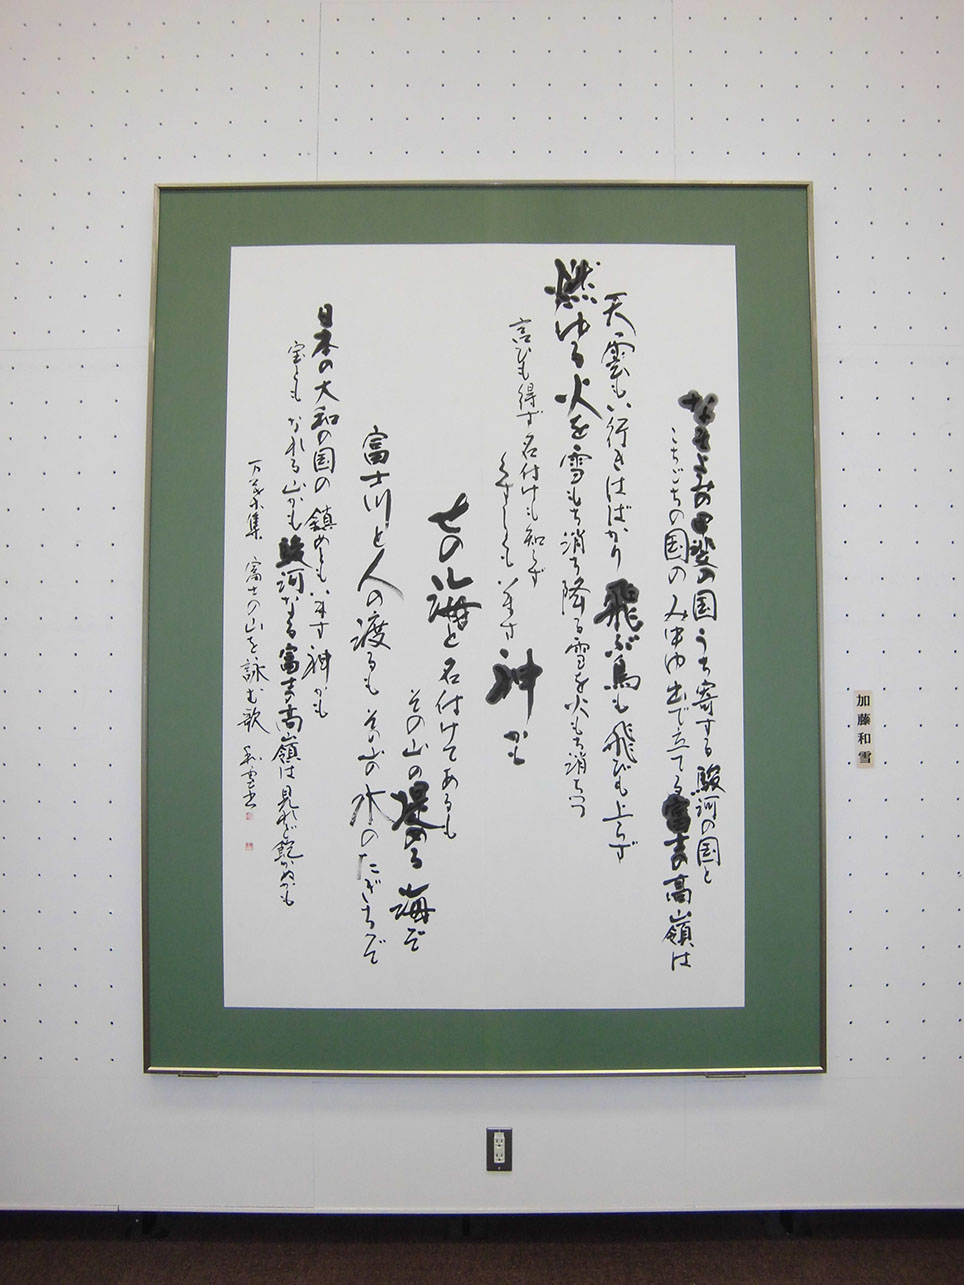 なまよみの甲斐の国うち寄する駿河の国と
こちごちの国のみ中ゆ出で立てる富士の高嶺は
天雲もい行きはばかり飛ぶ鳥も飛びも上らず
燃ゆる火を雪もち消ち降る雪を火もち消ちつつ
言ひも得ず名付けも知らず
くすしくもいます神かも
せの海と名付けてあるも
その山の堤める海ぞ
富士川と人の渡るもその山の水のたぎちぞ
日本の大和の国の鎮めともいます神かも
宝ともなれる山かも駿河なる富士の高嶺は見れど飽かぬかも
万葉集 富士の山を詠む歌 和雪書
加藤和雪